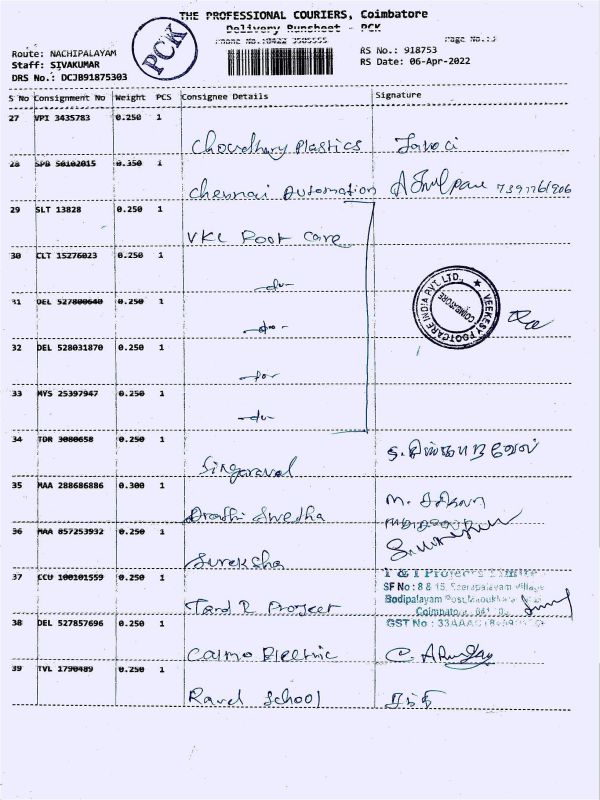 THE PROFESSIONAL COURIERS, Coimbatore
Delivery Runsheet - PCK
PCK
Page No.:3
Route: NACHIPALAYAM
Staff: SIVAKUMAR
DRS No.: DCJB91875303
RS No.: 918753
RS Date: 06-Apr-2022
S No Consignment No Weight PCS Consignee Details Signature
27 VPI 3435783 0.250 1
Chowdhury Plastics
28 SPB 50102015 0.350 1
Chennai Automation
29 SLT 13828 0.250 1
VKC Foot Care
30 CLT 15276023 0.250 1
-do-
31 DEL 527800640 0.250 1
-do-
VEEKESY FOOTCARE INDIA PVT. LTD.,
COIMBATORE
32 DEL 528031870 0.250 1
-do-
33 MYS 25397947 0.250 1
-do-
34 TDR 3080658 0.250 1
Singaravel
35 MAA 288686886 0.300 1
36 MAA 857253932 0.250 1
Sureksha
37 CCU 100101559 0.250 1
T and R Project
SF No : 8 & 15,
Bodipalayam Post,
Coimbatore
GST No :
38 DEL 527857696 0.250 1
Electric
39 TVL 1790489 0.250 1
School